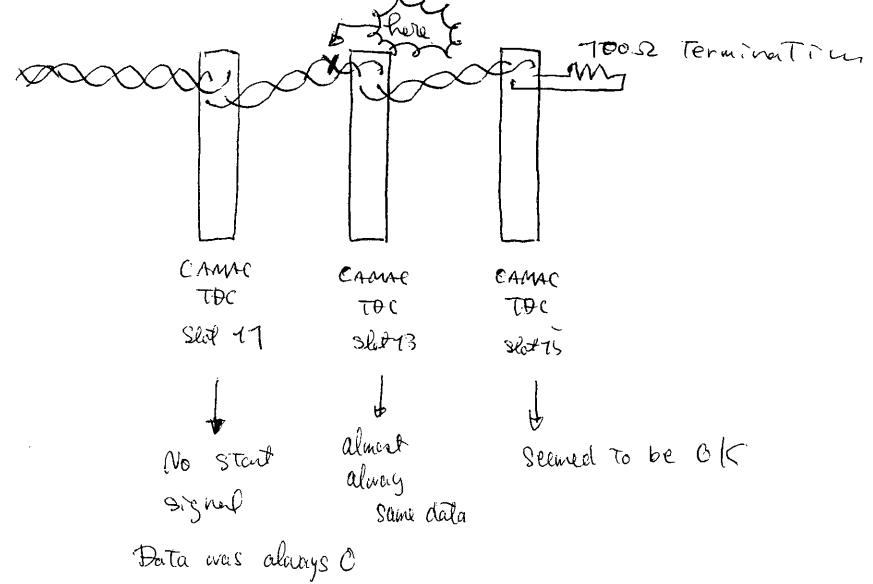 here
100Ω Termination
CAMAC
TDC
Slot 11
CAMAC
TDC
slot 13
CAMAC
TDC
slot 15
No start
signal
Data was always 0
almost
alway
same data
Seemed to be OK